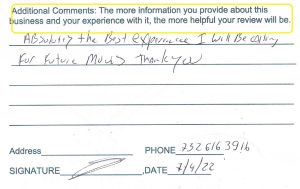 Additional Comments: The more information you provide about this
business and your experience with it, the more helpful your review will be.
Absolutly the Best experience I will Be calling
For Future Moves Thank you
Address PHONE 7326163916
SIGNATURE ,DATE 7/4/22